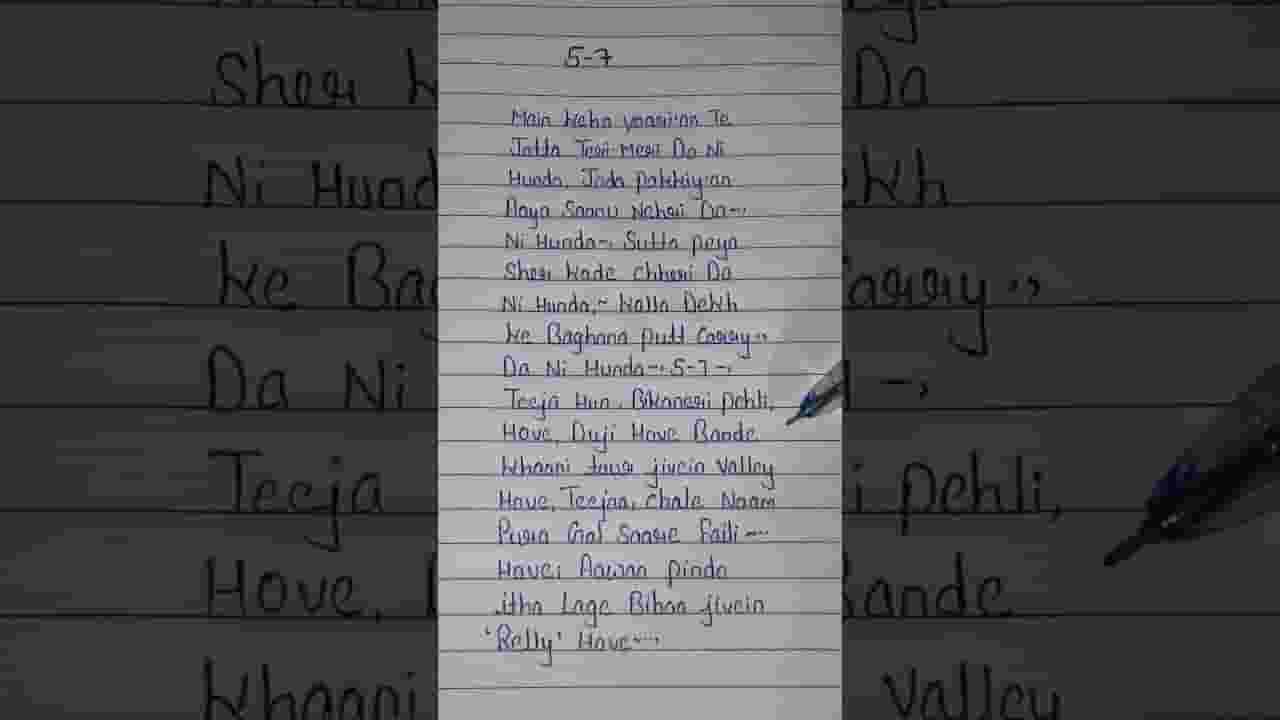 5-7
Main keha yaarian Te
Jatta Teri-Meri Da Ni
Hunda, Jada pakkiyan
Paya Saanu Neheri Da~
Ni Hunda~, Sutta peya
Sher kade chheri Da
Ni Hunda,~ kalla Dekh
ke Baghana putt Carry~
Da Ni Hunda~, 5-7~,
Teeja Hun, Bikaneri pehli,
Hove, Duji Hove Bande
khaani jivein Valley
Hove, Teejaa, chale Naam
Pura Gal Saare Faili~
Hove, Aawan pinda
itha Lage Bihaa jivein
'Relly' Hove~